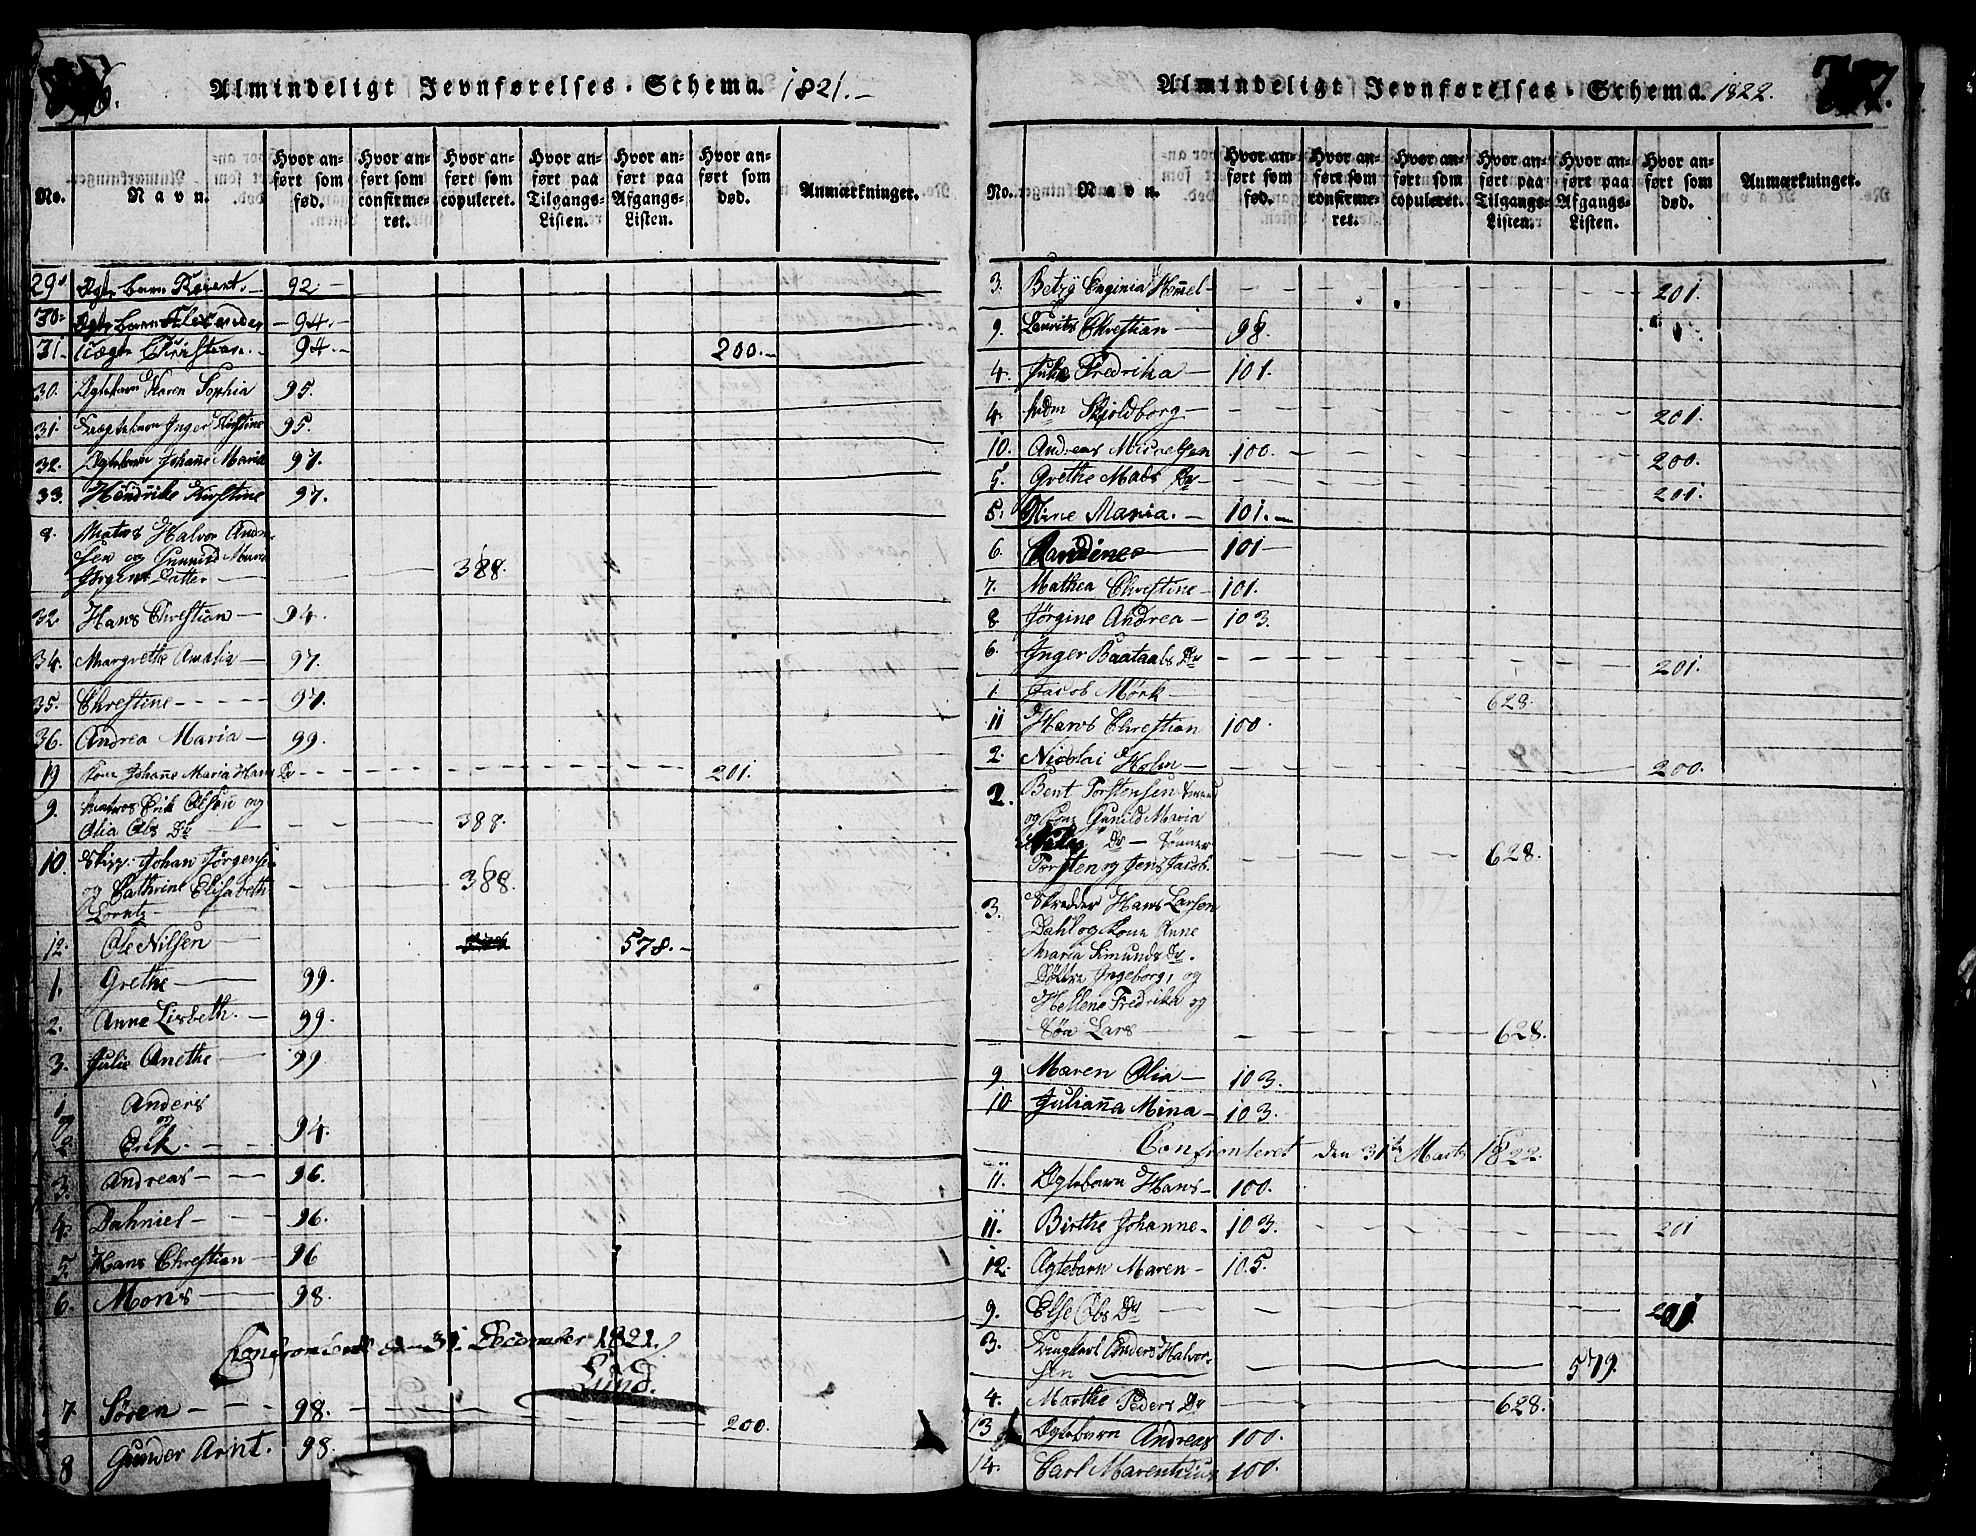 Almindeligt Jevnførelses-Schema. 1821.-
No.
Navn.
Hvor anført som fød.
Hvor anført som confirmeret.
Hvor anført som copuleret.
Hvor anført paa Tilgangs-Listen.
Hvor anført paa Afgangs-Listen.
Hvor anført som død.
Anmærkninger.
29. barn 92 -
30. barn - 94.-
31. Christian.- 94.- 200.-
30. Ægtebarn Karen Sophia 95.
31. Inger Kirstine 95.
32. Ægtebarn Johañe Marie 97.
33. Hendrike Kirstine 97.
8. Matros Halvor Anders-
sen og Gunnild Maria
Jørgens Datter - 388.
32. Hans Christian - 94.-
34. Margrethe Amalia - 97.
35. Christine - - - - 97.
36. Andrea Maria - 99.
19 Kone Johañe Maria Hans Dr - - - 201.
9. Matros Erik Olsen og
Olia Ols Dr - - 388.
10. Skipp. Johan Jørgensen
og Cathrine Elisabeth
Lorntz - 388.
12. Ole Nilsen 578.-
1. Grethe - 99.
2. Anne Lisbeth. - 99.
3. Julie Anethe 99
1 Anders
og og
2. Erik. - - 94.
3. Andreas - - 96.
4. Dahniel - - - 96.
5. Hans Christian - 96
6. Mons - 98.
31 December 1821.
Lund.
7. Søren - - - 98. - - 200.
8 Gunder Arnt. 98.
Almindeligt Jevnførelses-Schema. 1822.
No.
Navn.
Hvor anført som fød.
Hvor anført som confirmeret.
Hvor anført som copuleret.
Hvor anført paa Tilgangs-Listen.
Hvor anført paa Afgangs-Listen.
Hvor anført som død.
Anmærkninger.
3. Betzy Enginia Hem̃el - 201.
9. Laurits Christian - 98.
4. Fredrika - 101.
4. Skjoldborg - 201.
10. Andreas Micaelsen 100. - 200.
5. Grethe Mads Dr - 201.
5. Tine Maria. - 101. -
6. Randine - 101 -
7. Mathea Christine - 101.
8 Jørgine Andrea - 103.
6. Inger Baataals Dr - 201.
1. Jacob Mørk 628.
11 Hans Christian 100.
2. Nicolai Holm - 200.
2. Bent Torstensen
og Kone Gunild Maria
Dr - Sønner
Torsten og Jens Jacob. 628.
3. Skrædder Hans Larsen
Dahl og Kone Anne
Maria Simunds Dr.
Døttre Ingeborg, og
Hellene Fredrika og
Søn Lars - 628.
9. Maren Olia - 103.
10. Juliaña Mina - 103.
Confronteret den 31te Marts 1822.
11. Ægtebarn Hans - 100.
11. Birthe Johanne - 103. 201
12. Ægtebarn Maren - 105.
9. Else Ols Dr - 201.
3. Ungkarl Anders Halvor-
sen - 579.
4. Marthe Peders Dr - 628.
13 Ægtebarn Andreas 100.
14. Carl Marentius 100.